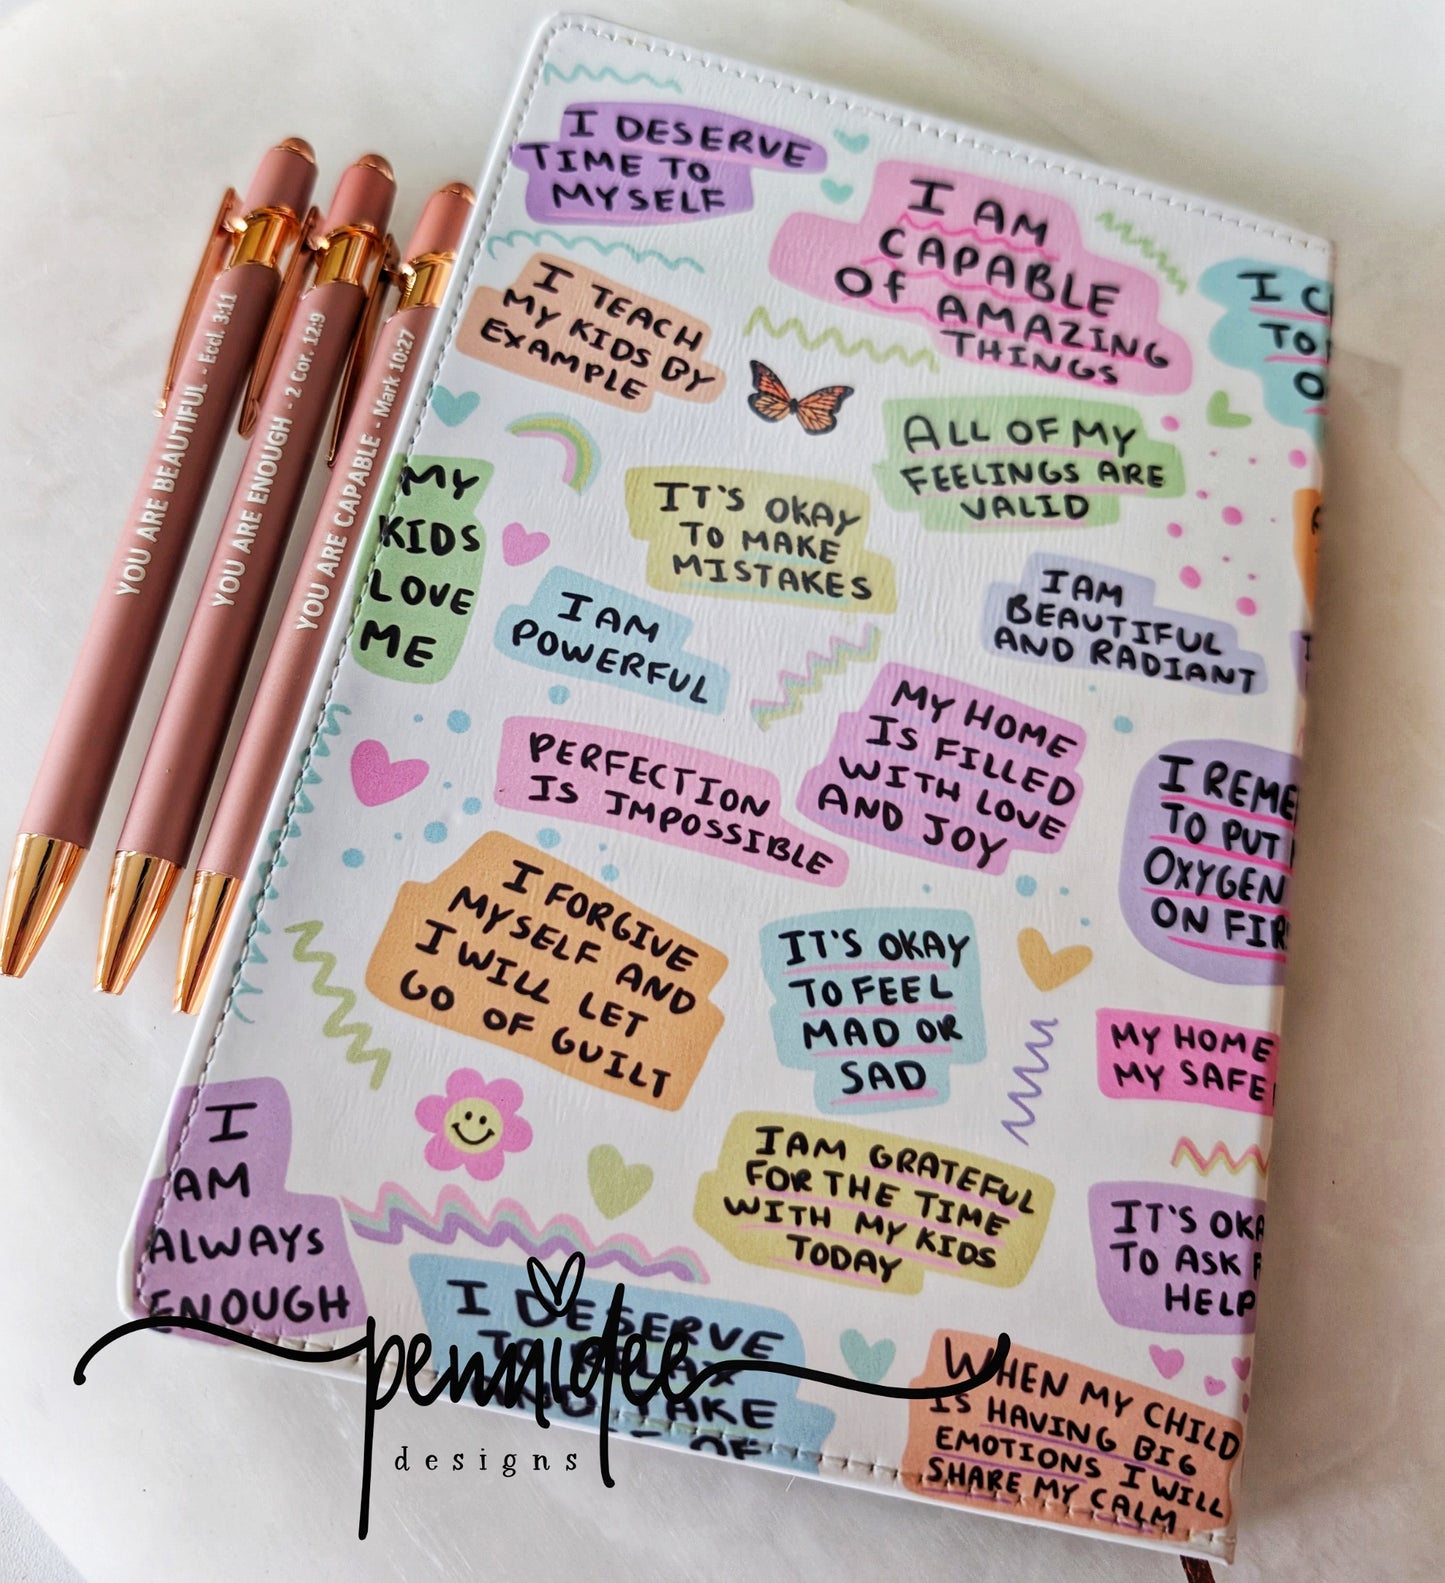 YOU ARE BEAUTIFUL - Eccl. 3:11
YOU ARE ENOUGH - 2 Cor. 12:9
YOU ARE CAPABLE - Mark 10:27
I DESERVE
TIME TO
MYSELF
I AM
CAPABLE
OF AMAZING
THINGS
I TEACH
MY KIDS BY
EXAMPLE
ALL OF MY
FEELINGS ARE
VALID
MY
KIDS
LOVE
ME
IT'S OKAY
TO MAKE
MISTAKES
I AM
POWERFUL
I AM
BEAUTIFUL
AND RADIANT
MY HOME
IS FILLED
WITH LOVE
AND JOY
PERFECTION
IS IMPOSSIBLE
I
TO PUT
OXYGEN
ON
I FORGIVE
MYSELF AND
I WILL LET
GO OF GUILT
IT'S OKAY
TO FEEL
MAD OR
SAD
MY HOME
MY SAFE
I
AM
ALWAYS
ENOUGH
I AM GRATEFUL
FOR THE TIME
WITH MY KIDS
TODAY
IT'S
TO ASK
HELP
I DESERVE
TO RELAX
AND TAKE
OF
WHEN MY CHILD
IS HAVING BIG
EMOTIONS I WILL
SHARE MY CALM
pennidee
designs